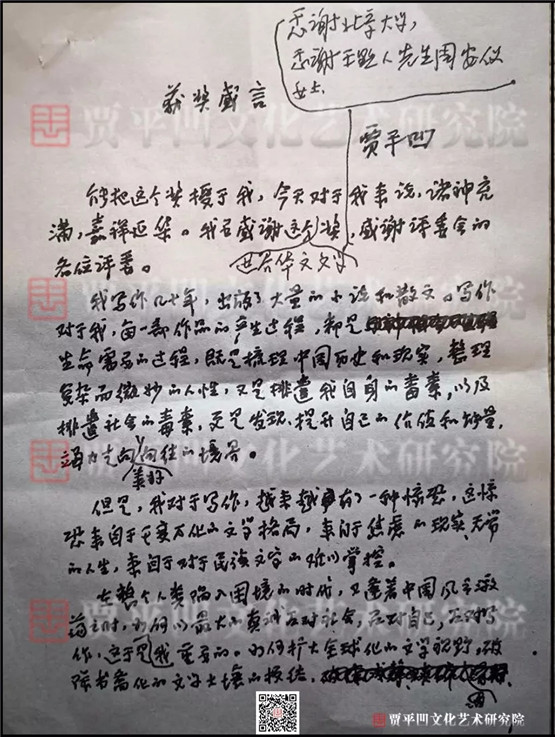 感谢北京大学，
感谢王默人先生周安仪
女士
获奖感言
贾平凹
能把这个奖授于我，今天对于我来说，诸神充
满，嘉祥延集。我在感谢这个奖，感谢评委会的
世界华文文学
各位评委。
我写作几十年，出版了大量的小说和散文。写作
对于我，每一部作品的产生过程，都是
生命需要的过程，既是梳理中国历史和现实，整理
复杂而微妙的人性，又是排遣我自身的毒素，以及
排遣社会的毒素，更是发现、提升自己的价值和能量，
力走向向往的境界。
美好
但是，我对于写作，越来越有了一种惊恐，这惊
恐来自于千变万化的文学格局，来自于焦虑的现实、无常
的人生，来自于对于民族文字的难以掌控。
在整个人类陷入困境的时代，又逢着中国风气激
荡之时，如何以最大的真诚面对社会，面对自己，面对写
作，这于我是重要的。如何扩大全球化的文学视野，破
除书斋化的文学土壤的板结，
贾平凹文化艺术研究院
贾平凹文化艺术研究院
贾平凹文化艺术研究院
贾平凹文化艺术研究院
贾平凹文化艺术研究院